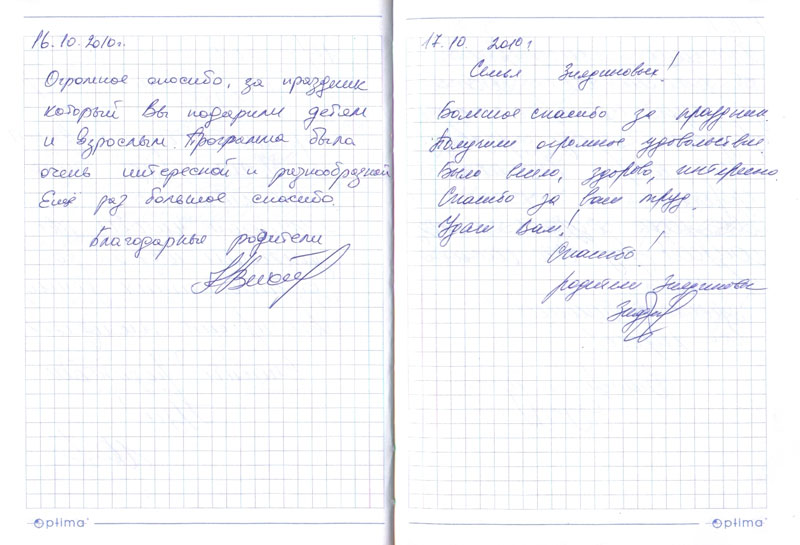 16.10.2010г.
Огромное спасибо, за праздник
который Вы подарили детям
и взрослым. Программа была
очень интересной и разнообразной
Ещё раз большое спасибо.
Благодарные родители
optima
17.10. 2010г
Семья Зиядиновых!
Большое спасибо за праздник.
Получили огромное удовольствие.
Было весело, здорово, интересно.
Спасибо за ваш труд.
Удачи Вам!
Спасибо!
родители Зиядиновы
optima